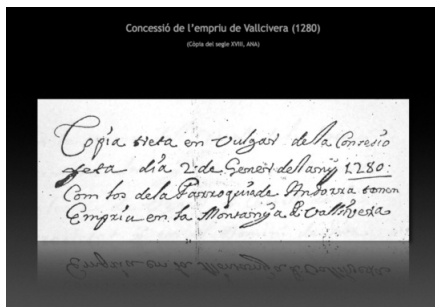 Concessió de l'empriu de Vallcivera (1280)
(Còpia del segle XVIII, ANA)
Copia treta en vulgar de la Concesio
feta dia 2 de Gener del any 1280:
Com los de la Parroquia de Andorra tenen
Empriu en la Montanya de Vallsivera